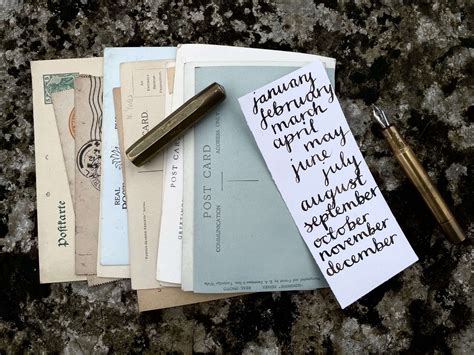 january
february
march
april
may
june
july
august
september
october
november
december
Postkarte
REAL
POST CARD
POST CARD
COMMUNICATION
ADDRESS ONLY